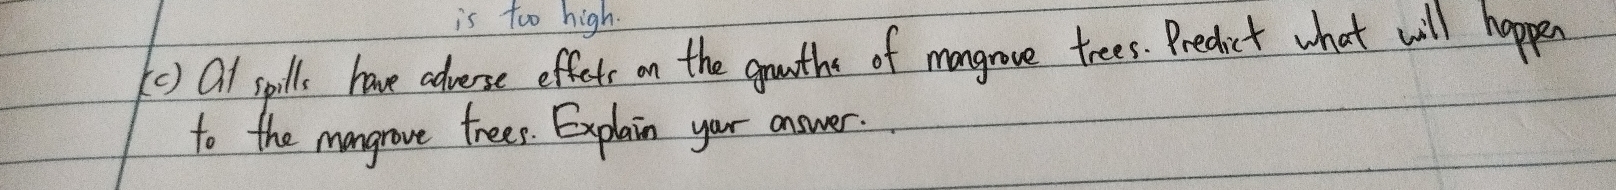 is too high.
(c) Oil spills have adverse effets on the growths of mangrove trees. Predict what will happen
to the mangrove trees. Explain your answer.